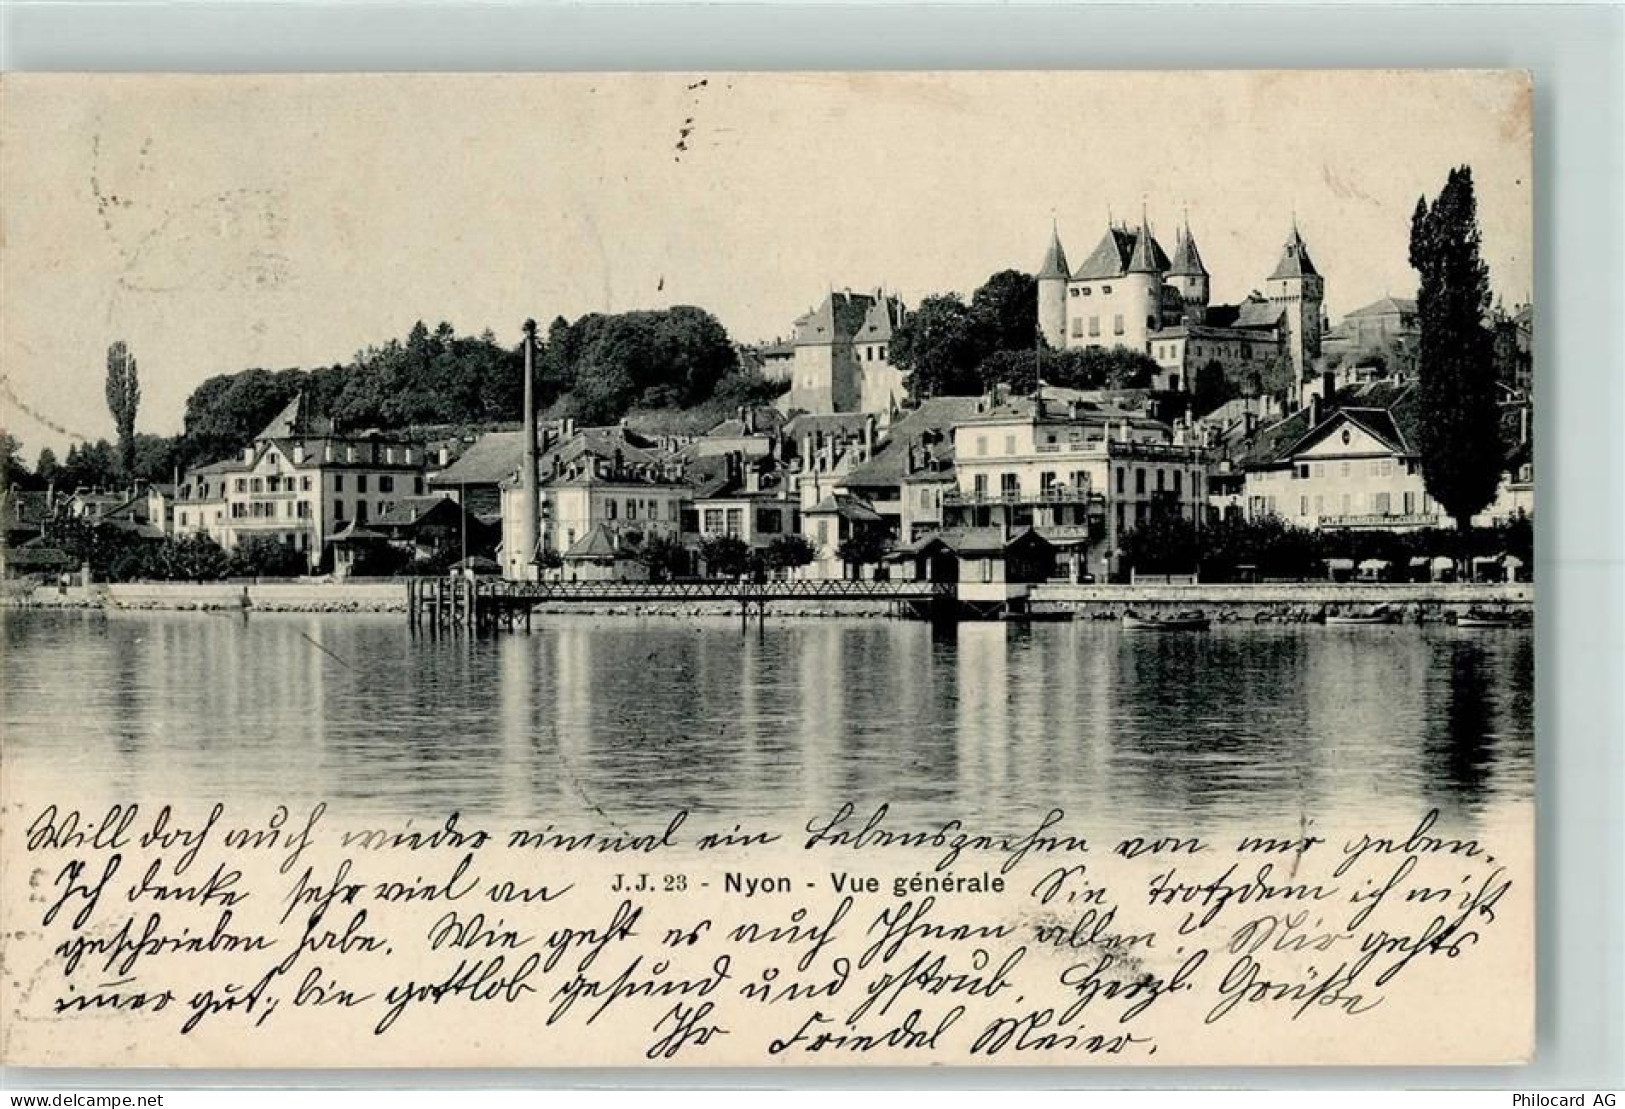 Will doch auch wieder einmal ein Lebenszeichen von mir geben.
Ich denke sehr viel an Sie trotzdem ich nicht
J.J. 23 - Nyon - Vue générale
geschrieben habe. Wie geht es auch Ihnen allen? Mir gehts
immer gut, bin gottlob gesund und gstrub. Herzl. Grüße
Ihr Friedel Meier.
delcampe.net
Philocard AG